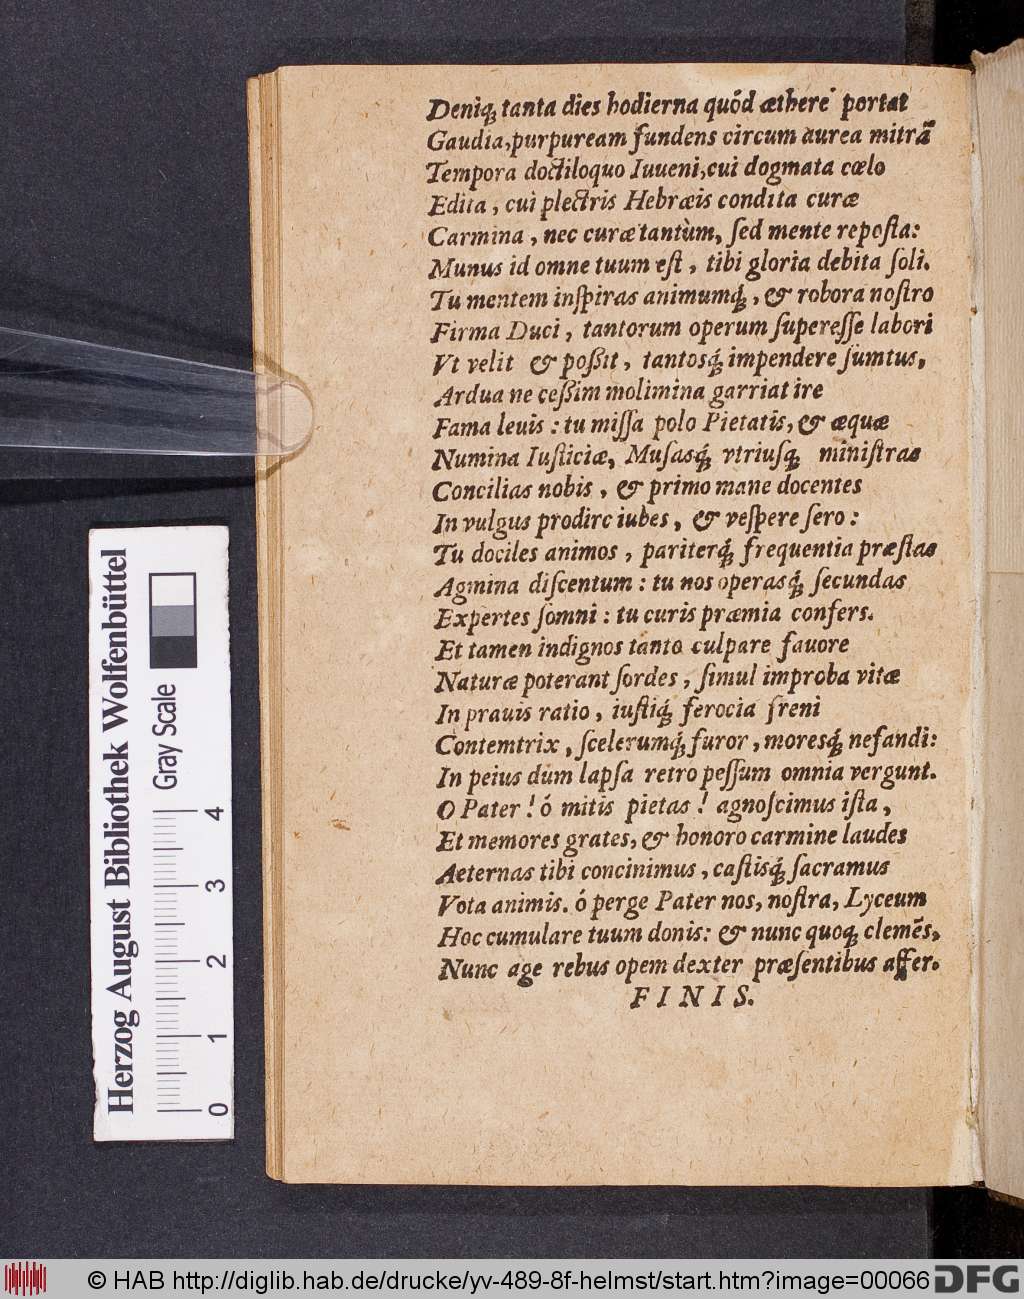 Deniq́; tanta dies hodierna quód æthere portat
Gaudia, purpuream fundens circum aurea mitrā
Tempora doctiloquo Iuueni, cui dogmata cœlo
Edita, cui plectris Hebræis condita curæ
Carmina, nec curæ tantùm, ſed mente repoſta:
Munus id omne tuum eſt, tibi gloria debita ſoli.
Tu mentem inſpiras animumq́;, & robora noſtro
Firma Duci, tantorum operum ſupereſſe labori
Vt velit & poßit, tantosq́; impendere ſumtus,
Ardua ne ceßim molimina garriat ire
Fama leuis: tu miſſa polo Pietatis, & æquæ
Numina Iuſticiæ, Muſasq́; vtriuſq; miniſtras
Concilias nobis, & primo mane docentes
In vulgus prodire iubes, & veſpere ſero:
Tu dociles animos, pariterq́; frequentia præſtas
Agmina diſcentum: tu nos operasq́; ſecundas
Expertes ſomni: tu curis præmia confers.
Et tamen indignos tanto culpare fauore
Naturæ poterant ſordes, ſimul improba vitæ
In prauis ratio, iuſtiq́; ferocia freni
Contemtrix, ſcelerumq́; furor, moresq́; nefandi:
In peius dum lapſa retro peſſum omnia vergunt.
O Pater! ó mitis pietas! agnoſcimus iſta,
Et memores grates, & honoro carmine laudes
Aeternas tibi concinimus, caſtisq́; ſacramus
Vota animis. ó perge Pater nos, noſtra, Lyceum
Hoc cumulare tuum donis: & nunc quoq; clemēs,
Nunc age rebus opem dexter præſentibus affer.
FINIS.
Herzog August Bibliothek Wolfenbüttel
Gray Scale
0 1 2 3 4
© HAB http://diglib.hab.de/drucke/yv-489-8f-helmst/start.htm?image=00066
DFG